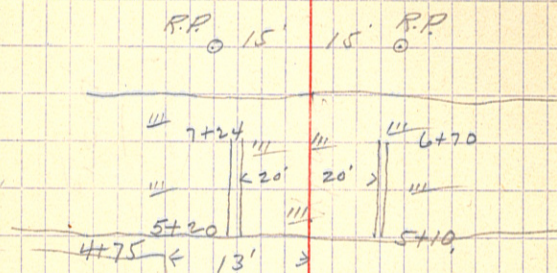 R.P. 15' 15' R.P.
7+24 6+70
20' 20'
5+20 5+10
4+75 13'